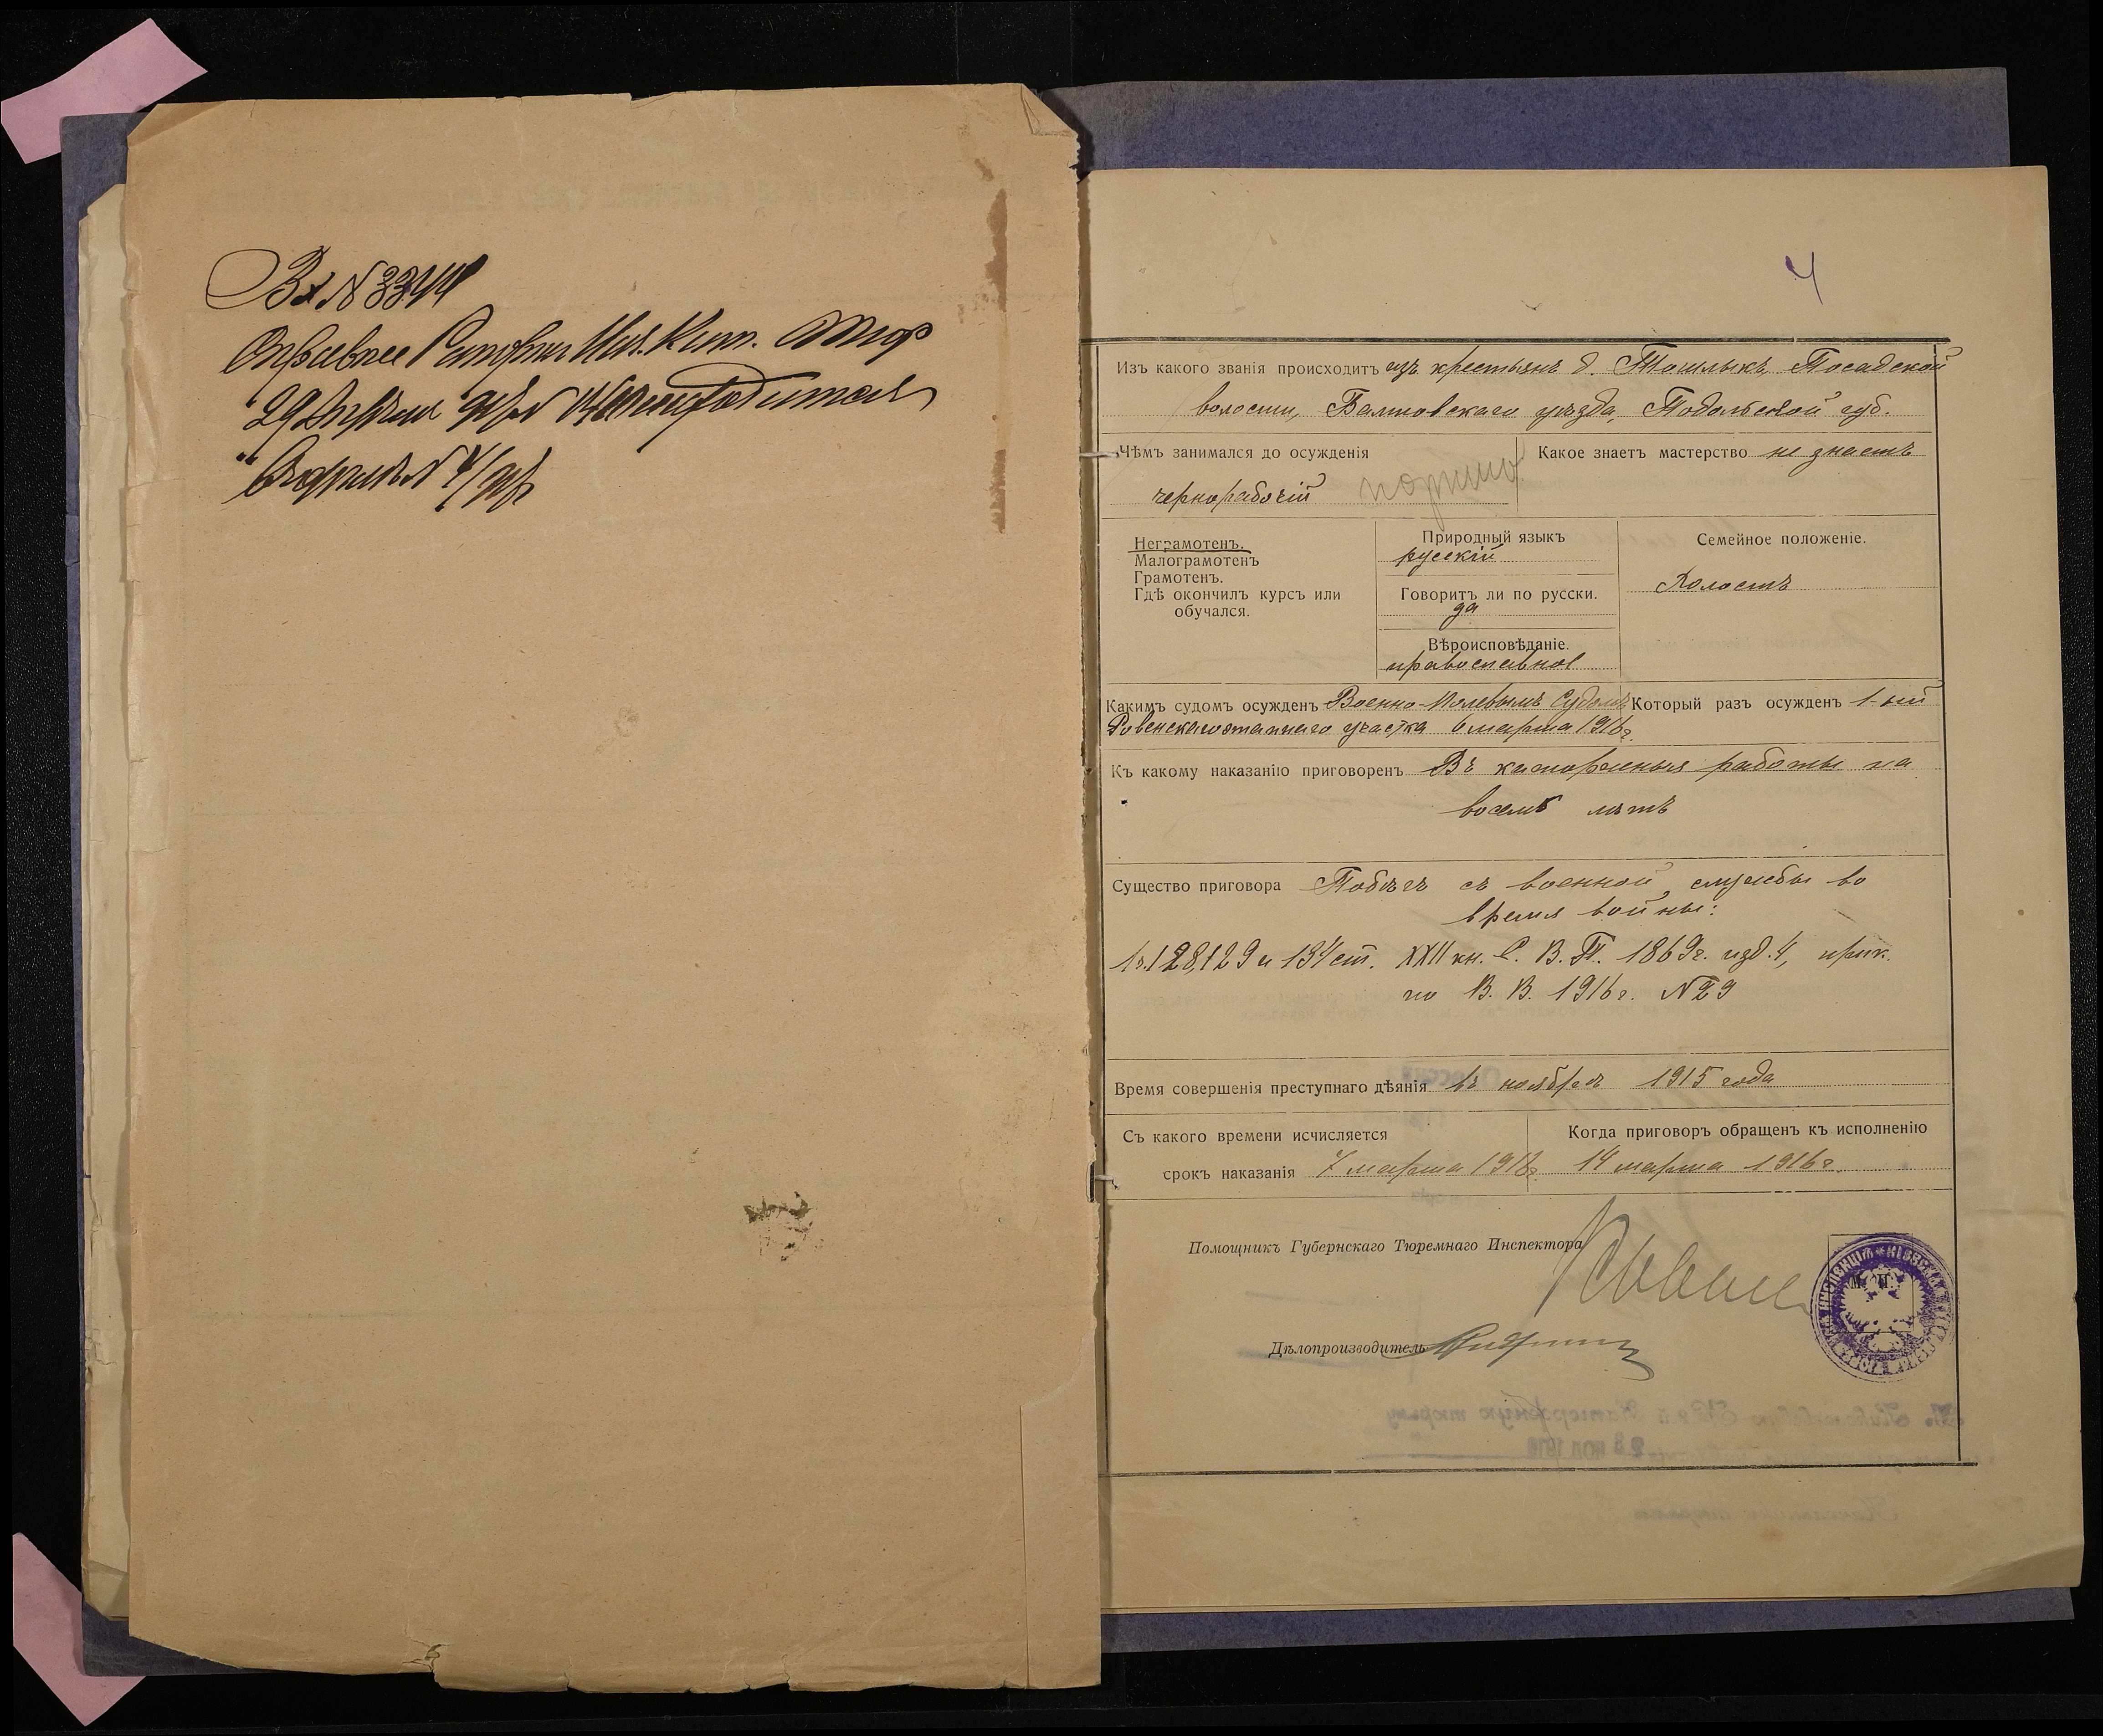 Вх № 3344
29 Апрѣля
4
Изъ какого званія происходитъ изъ крестьянъ д. Тошлыкъ, Посадской
волости, Балтовскаго уѣзда, Подольской губ.
Чѣмъ занимался до осужденія
чернорабочій
Какое знаетъ мастерство не знаетъ
Неграмотенъ.
Малограмотенъ
Грамотенъ.
Гдѣ окончилъ курсъ или
обучался.
Природный языкъ
русскій
Говоритъ ли по русски.
да
Вѣроисповѣданіе.
православное
Семейное положеніе.
Холостъ
Какимъ судомъ осужденъ Военно-Полевымъ Судомъ
Ровенскаго этапнаго участка 6 марта 1916 г.
Который разъ осужденъ 1-ый
Къ какому наказанію приговоренъ Въ каторжныя работы на
восемь лѣтъ
Существо приговора Побѣгъ съ военной службы во
время войны:
1 ч. 128, 129 и 134 ст. XXII кн. С. В. П. 1869 г. изд. 4, прик.
по В. В. 1916 г. № 29
Время совершенія преступнаго дѣянія въ ноябрѣ 1915 года
Съ какого времени исчисляется
срокъ наказанія 7 марта 1916 г.
Когда приговоръ обращенъ къ исполненію
14 марта 1916 г.
Помощникъ Губернскаго Тюремнаго Инспектора
М. П.
Дѣлопроизводитель